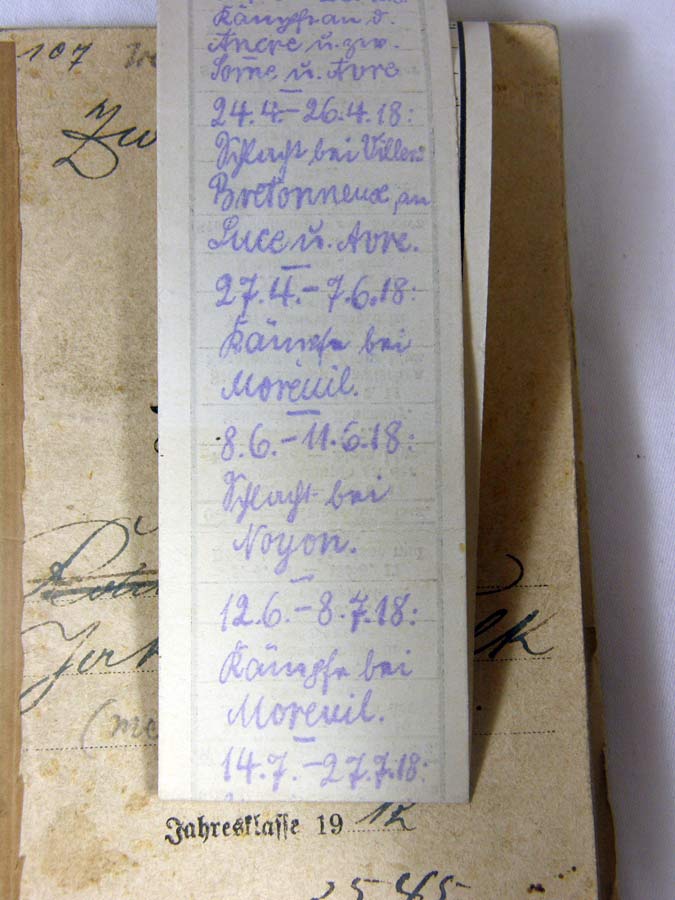 107
Kämpfe an d.
Ancre u. zw.
Somme u. Avre
24.4.–26.4.18:
Schlacht bei Villers
Bretonneux, an
Luce u. Avre.
27.4.–7.6.18:
Kämpfe bei
Moreuil.
8.6.–11.6.18:
Schlacht bei
Noyon.
12.6.–8.7.18:
Kämpfe bei
Moreuil.
14.7.–27.7.18:
Jahresklasse 19 12
2545